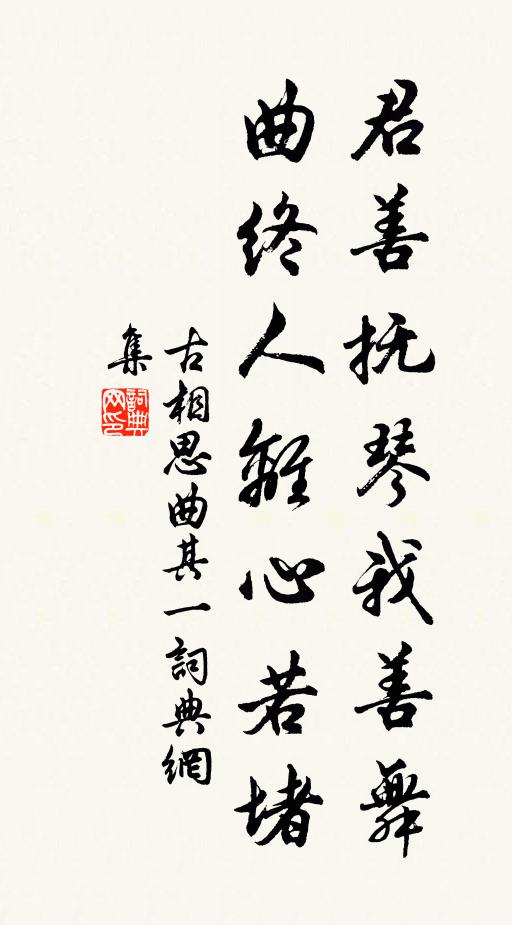 君善抚琴我善舞
曲终人離心若堵
古相思曲其一詞典網
集
詞典
网印